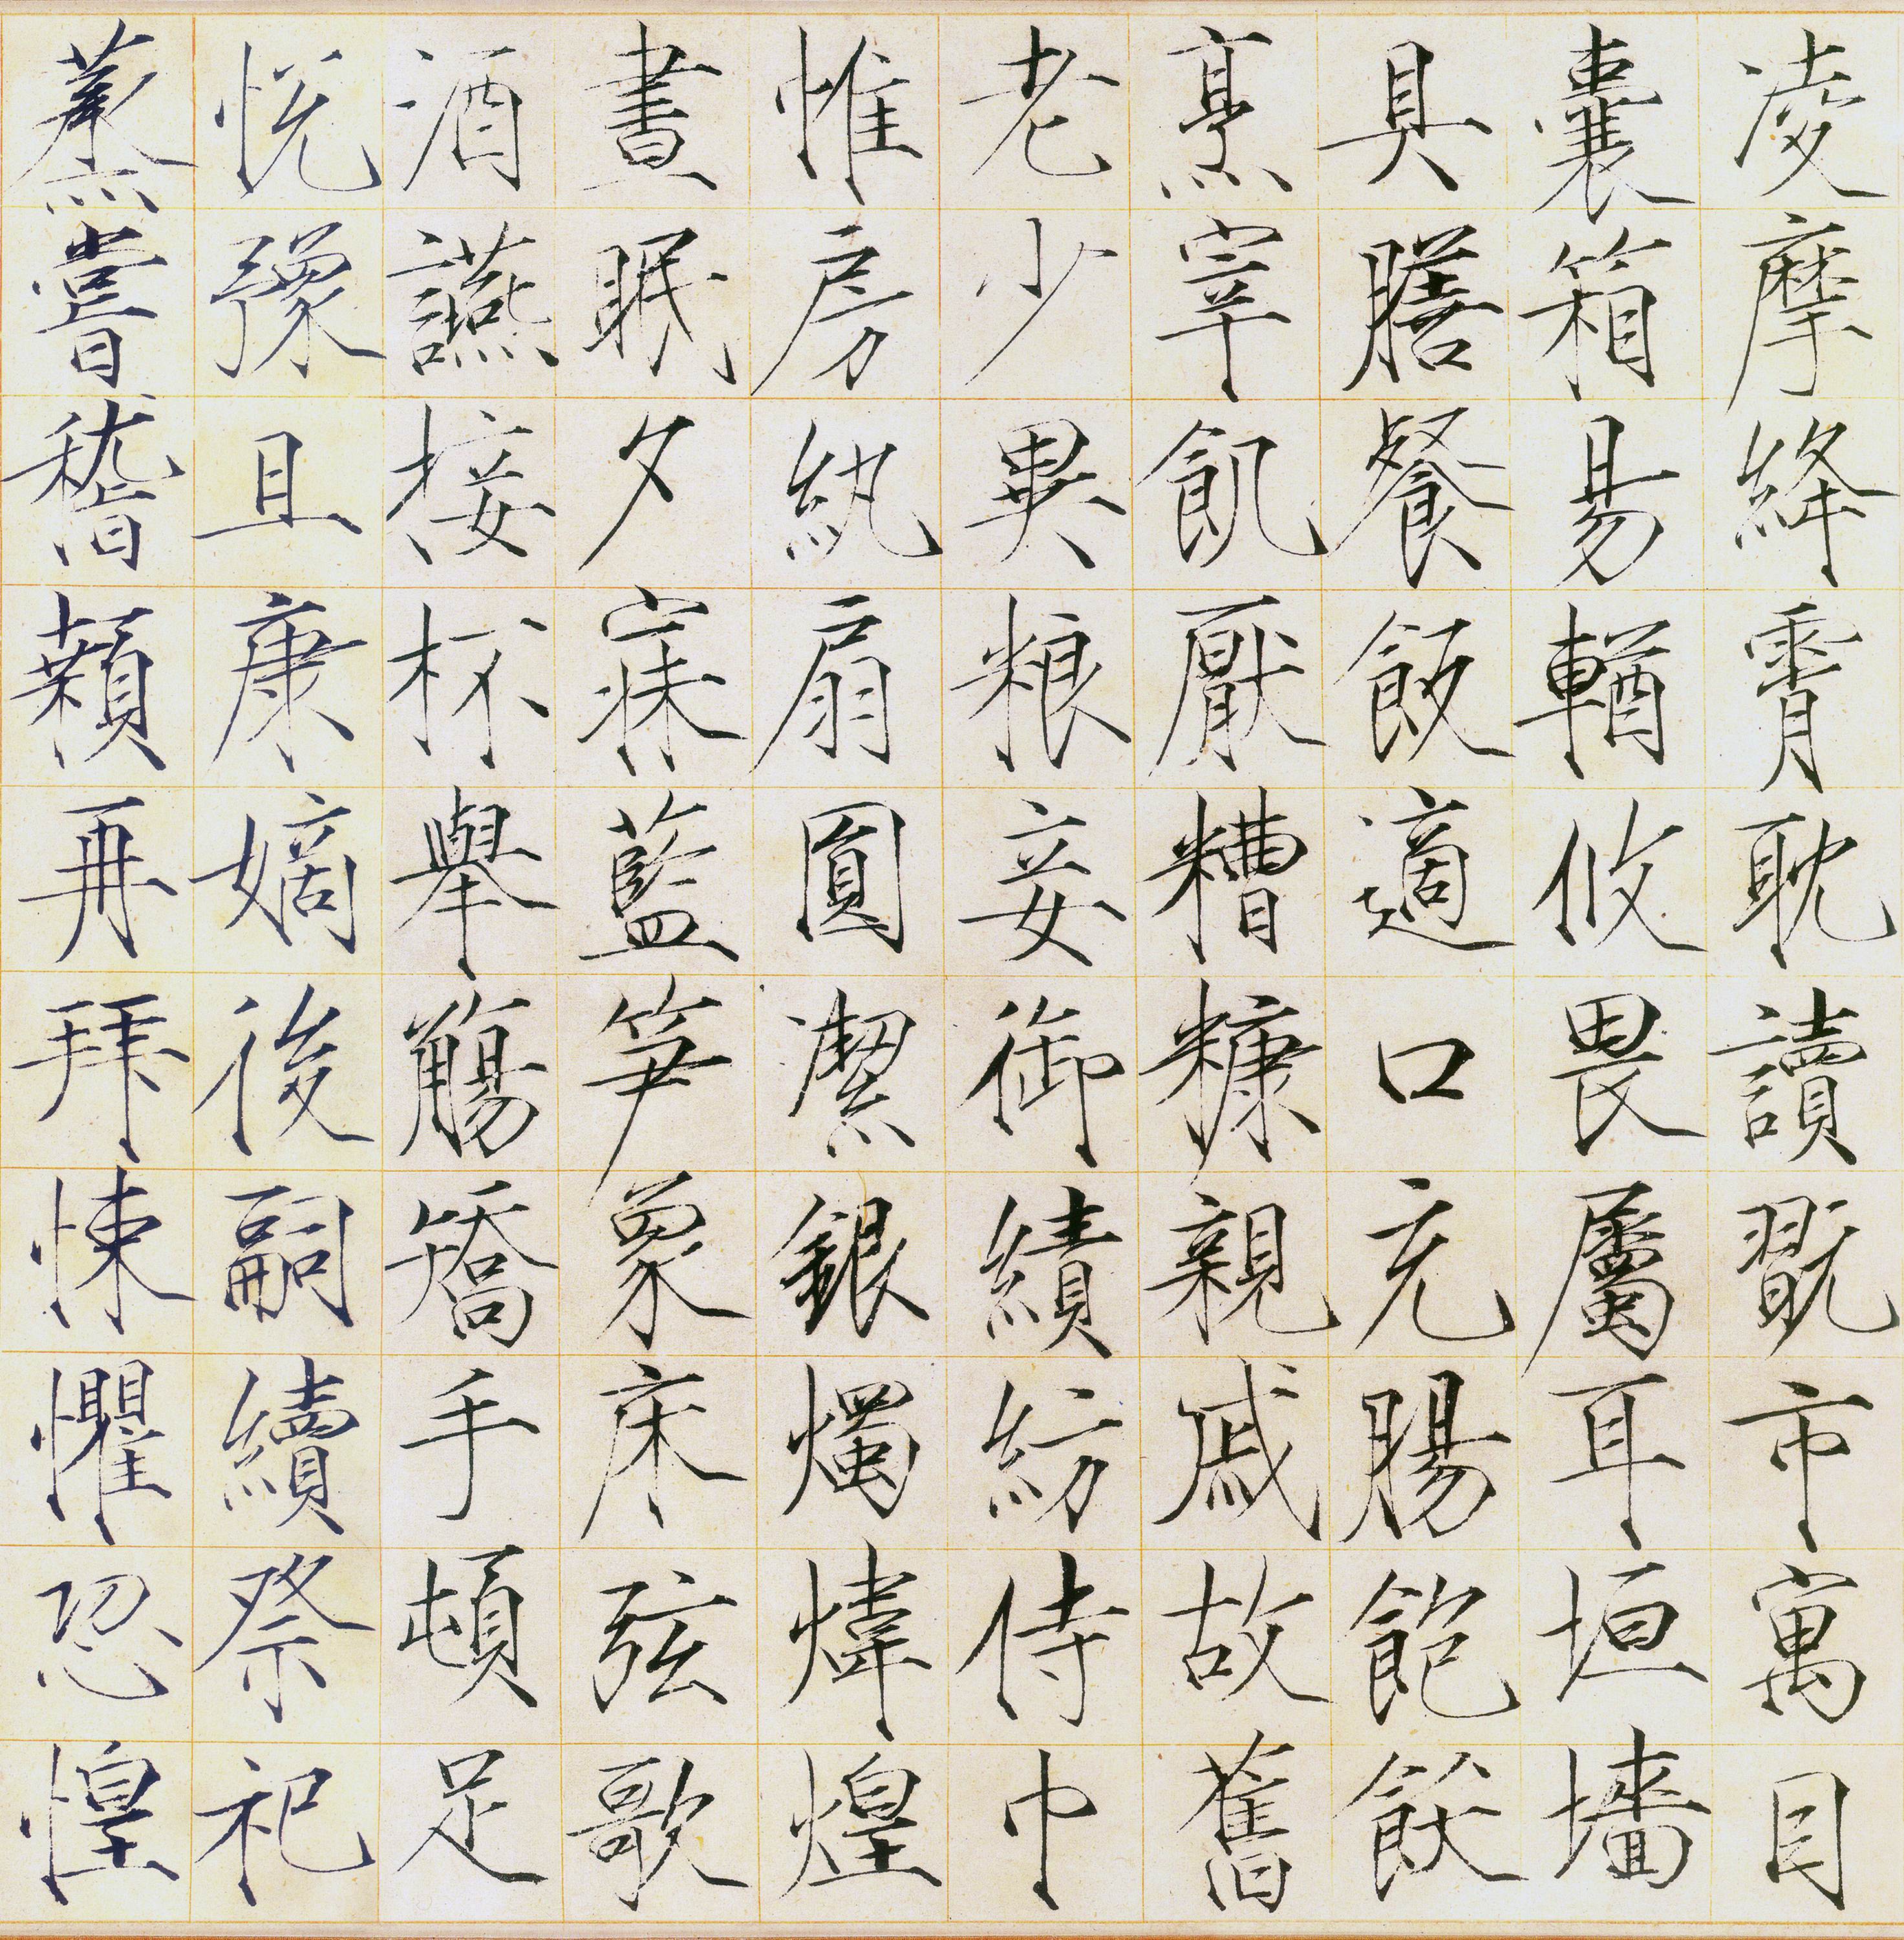 凌摩絳霄耽讀翫市寓目
囊箱易輶攸畏屬耳垣墻
具膳餐飯適口充腸飽飫
烹宰飢厭糟糠親戚故舊
老少異粮妾御績紡侍巾
惟房紈扇圓潔銀燭煒煌
晝眠夕寐藍笋象床弦歌
酒讌接杯舉觴矯手頓足
悅豫且康嫡後嗣續祭祀
蒸嘗稽顙再拜悚懼恐惶